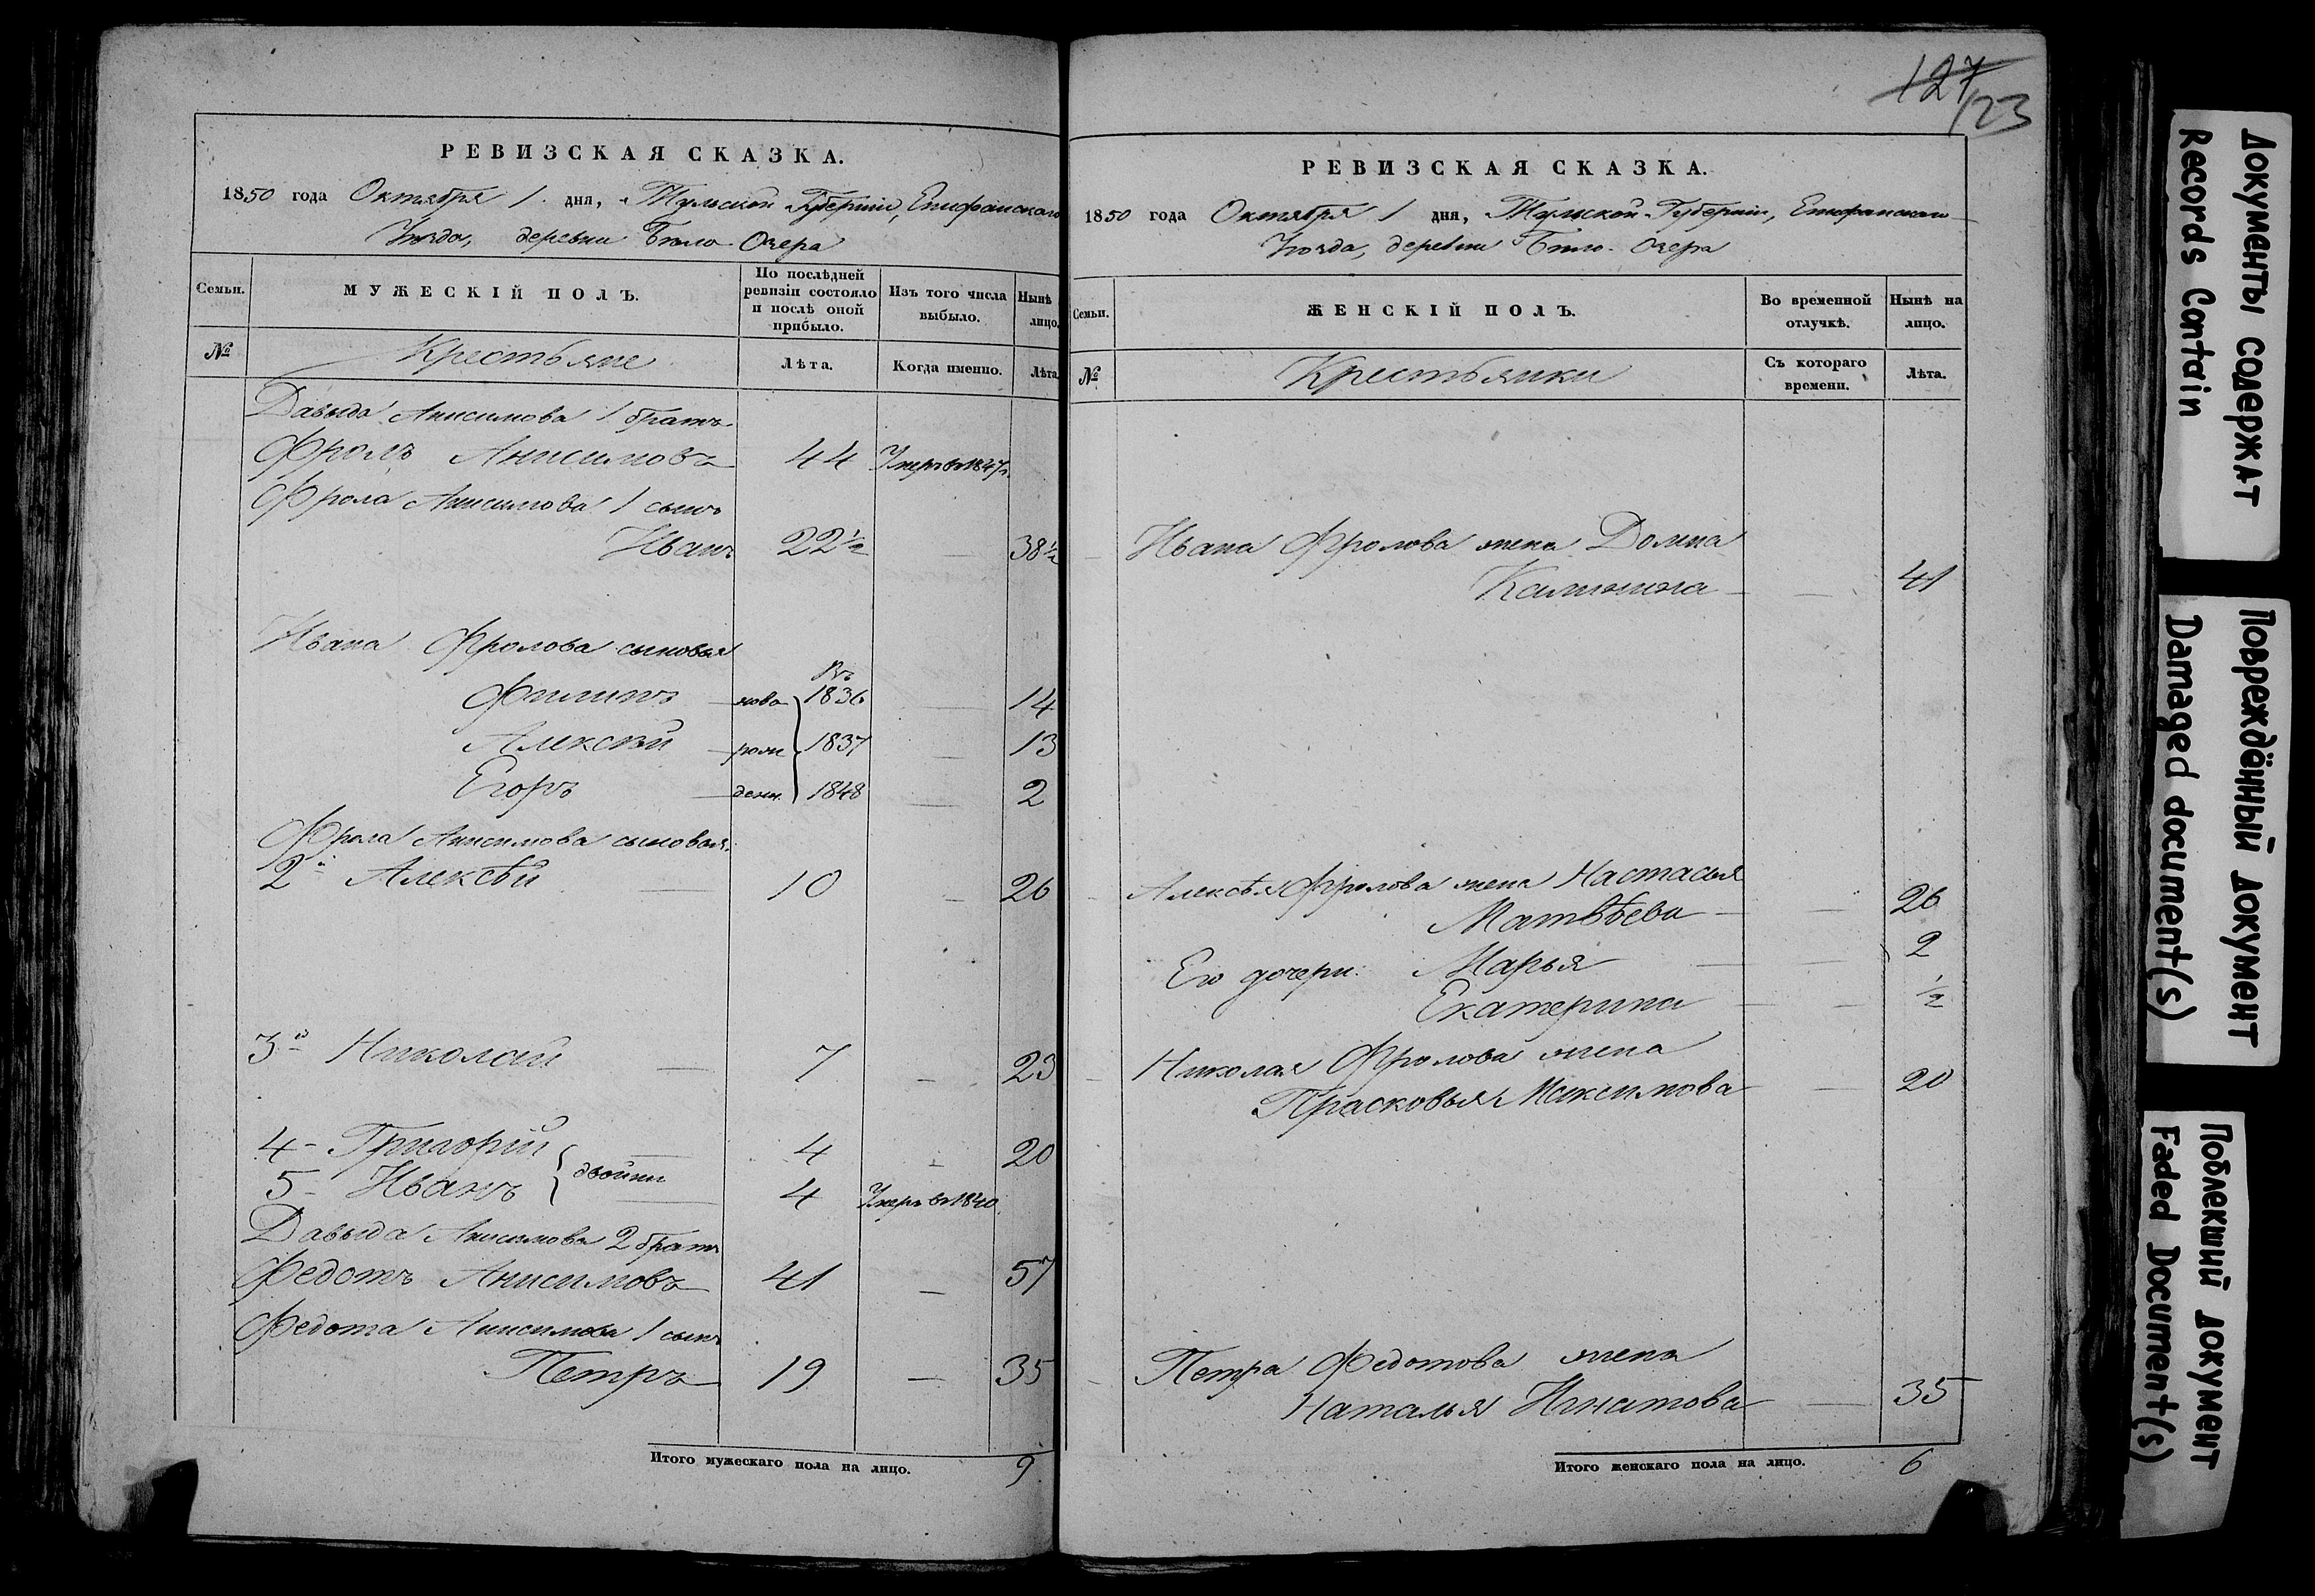 127
123
РЕВИЗСКАЯ СКАЗКА.
1850 года Октября 1 дня, Тульской Губернии, Епифанскаго
Уѣзда, деревни Бѣло-Озера
Семьи.
МУЖЕСКІЙ ПОЛЪ.
По послѣдней
ревизіи состояло
и послѣ оной
прибыло.
Изъ того числа
выбыло.
Нынѣ
лицо.
№
Крестьяне
Лѣта.
Когда именно.
Лѣта
Давыда Анисимова 1 братъ
Фролъ Анисимовъ 44 Умеръ въ 1847 г.
Фрола Анисимова 1 сынъ
Иванъ 22½ 38½
Ивана Фролова сыновья
Въ
Филипъ ново 1836 14
Алексѣй рож 1837 13
Егоръ ден. 1848 2
Фрола Анисимова сыновья:
2й Алексѣй 10 26
3й Николай 7 23
4 Григорій 4 20
двойни
5 Иванъ 4 Умеръ въ 1840
Давыда Анисимова 2 братъ
Федотъ Анисимовъ 41 57
Федота Анисимова 1 сынъ
Петръ 19 35
Итого мужескаго пола на лицо. 9
РЕВИЗСКАЯ СКАЗКА.
1850 года Октября 1 дня, Тульской Губерніи, Епифанскаго
Уѣзда, деревни Бѣло-Озера
Семьи.
ЖЕНСКІЙ ПОЛЪ.
Во временной
отлучкѣ.
Нынѣ на
лицо.
№
Крестьянки
Съ котораго
времени.
Лѣта.
Ивана Фролова жена Домна
Калинина 41
Алексѣя Фролова жена Настасья
Матвѣева 26
Его дочери: Марья 2
Екатерина ½
Николая Фролова жена
Прасковья Максимова 20
Петра Федотова жена
Наталья Игнатова 35
Итого женскаго пола на лицо. 6
Документы содержат
Records Contain
Повреждённый документ
Damaged document(s)
Поблекший документ
Faded Document(s)